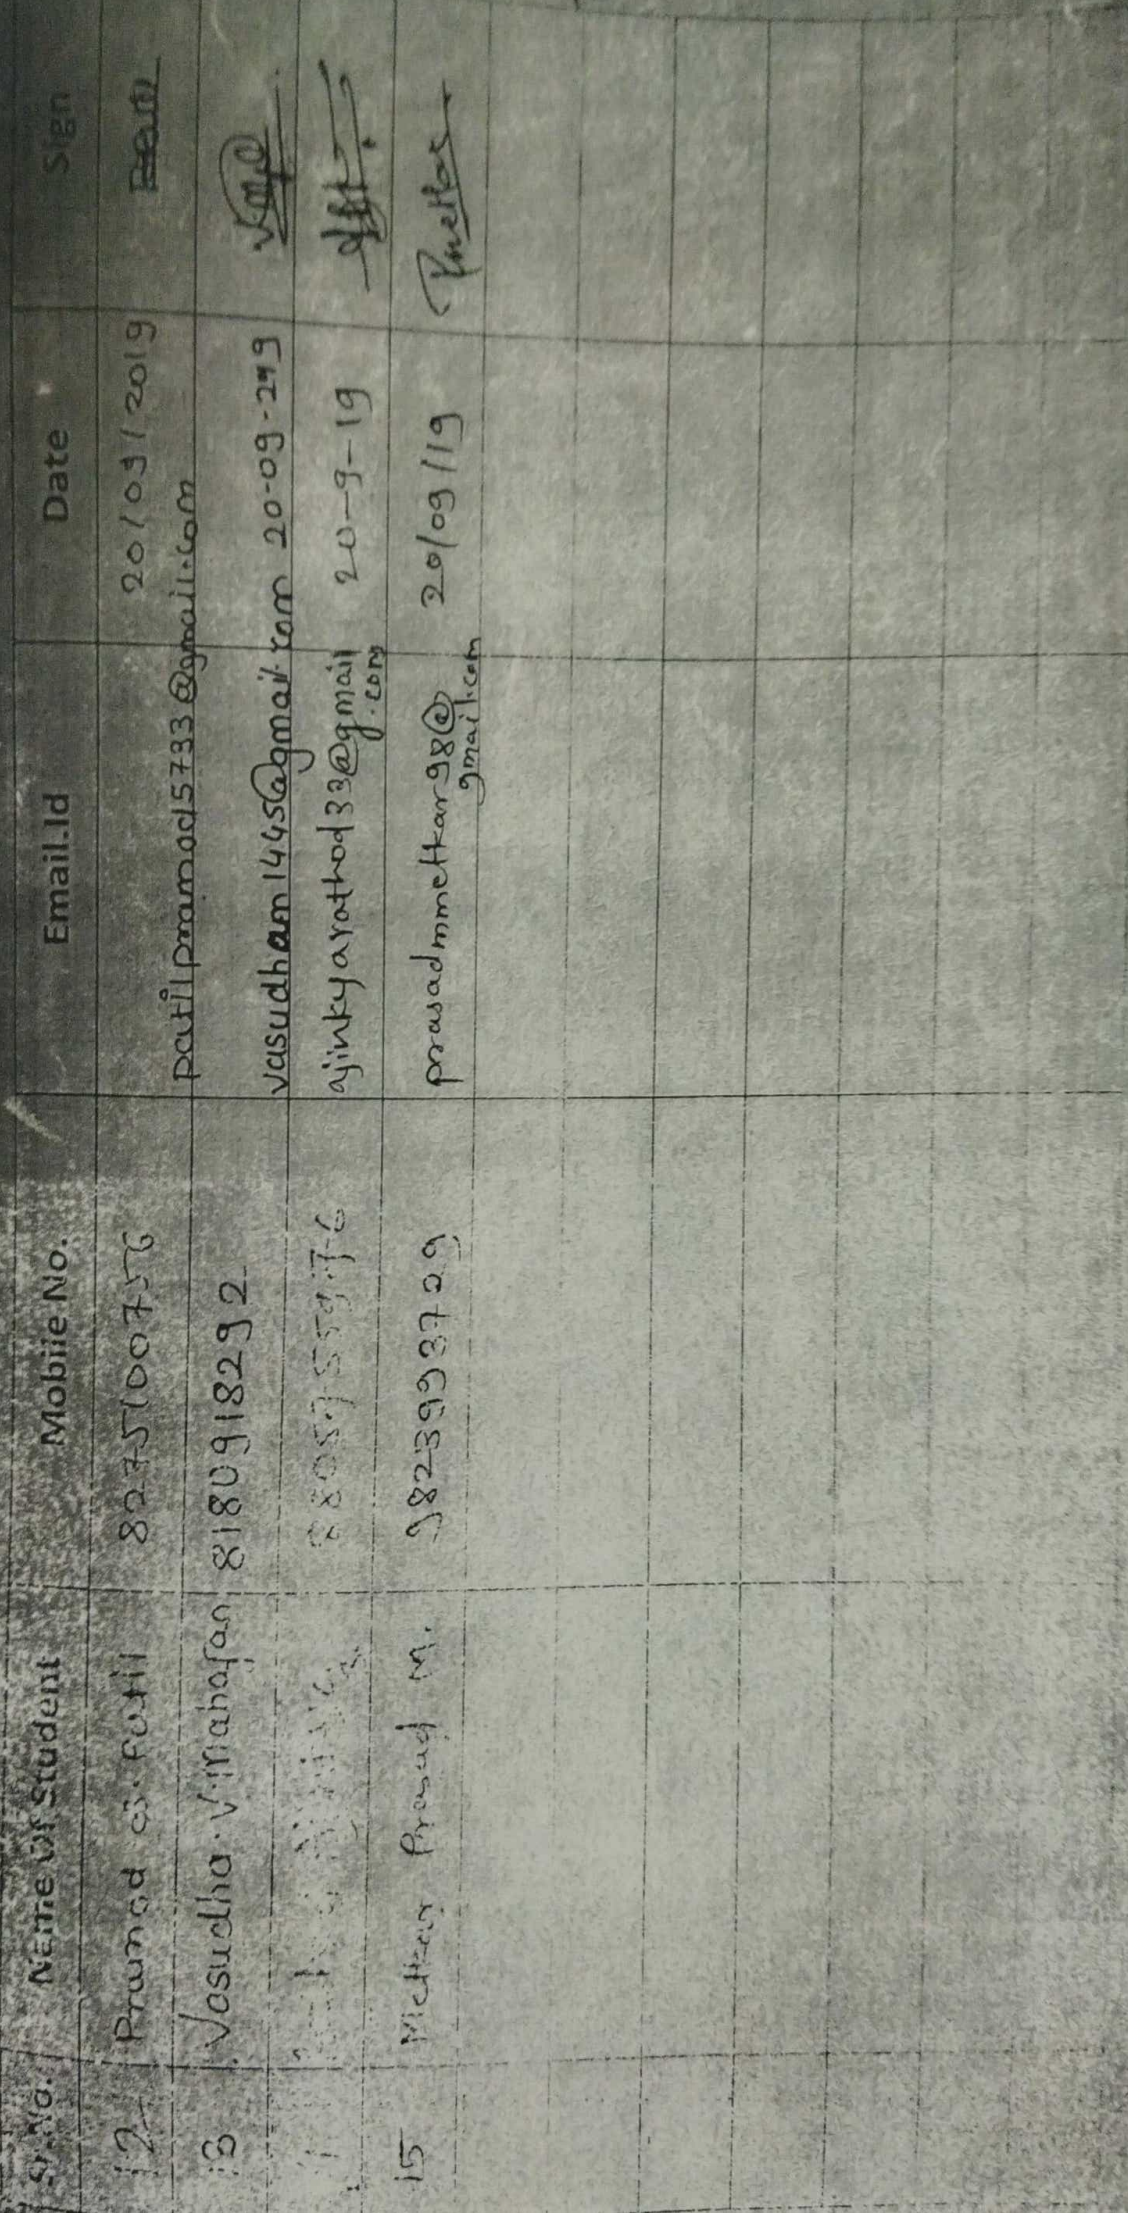 Sr. No. Name Of Student Mobile No. Email.Id Date Sign
12 Pramod Patil 8275100756 patilpramod5733@gmail.com 20/09/2019
13 Vasudha V. Mahajan 8180918292 vasudham1445@gmail.com 20-09-219
ajinkyarathod33@gmail 20-9-19
.com
15 Metkar Prasad M. 9823993709 prasadmmetkar98@ 20/09/19 Pmetkar
gmail.com